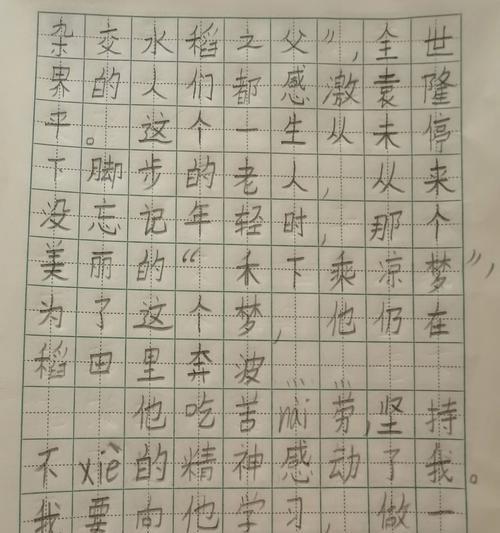 杂交水稻之父”,全世
界的人们都感激袁隆
平。这个一生从未停
下脚步的老人,从来
没忘记年轻时,那个
美丽的“禾下乘凉梦”,
为了这个梦,他仍在
稻田里奔波……
他吃苦nài劳,坚持
不xiè的精神感动了我。
我要向他学习,做一